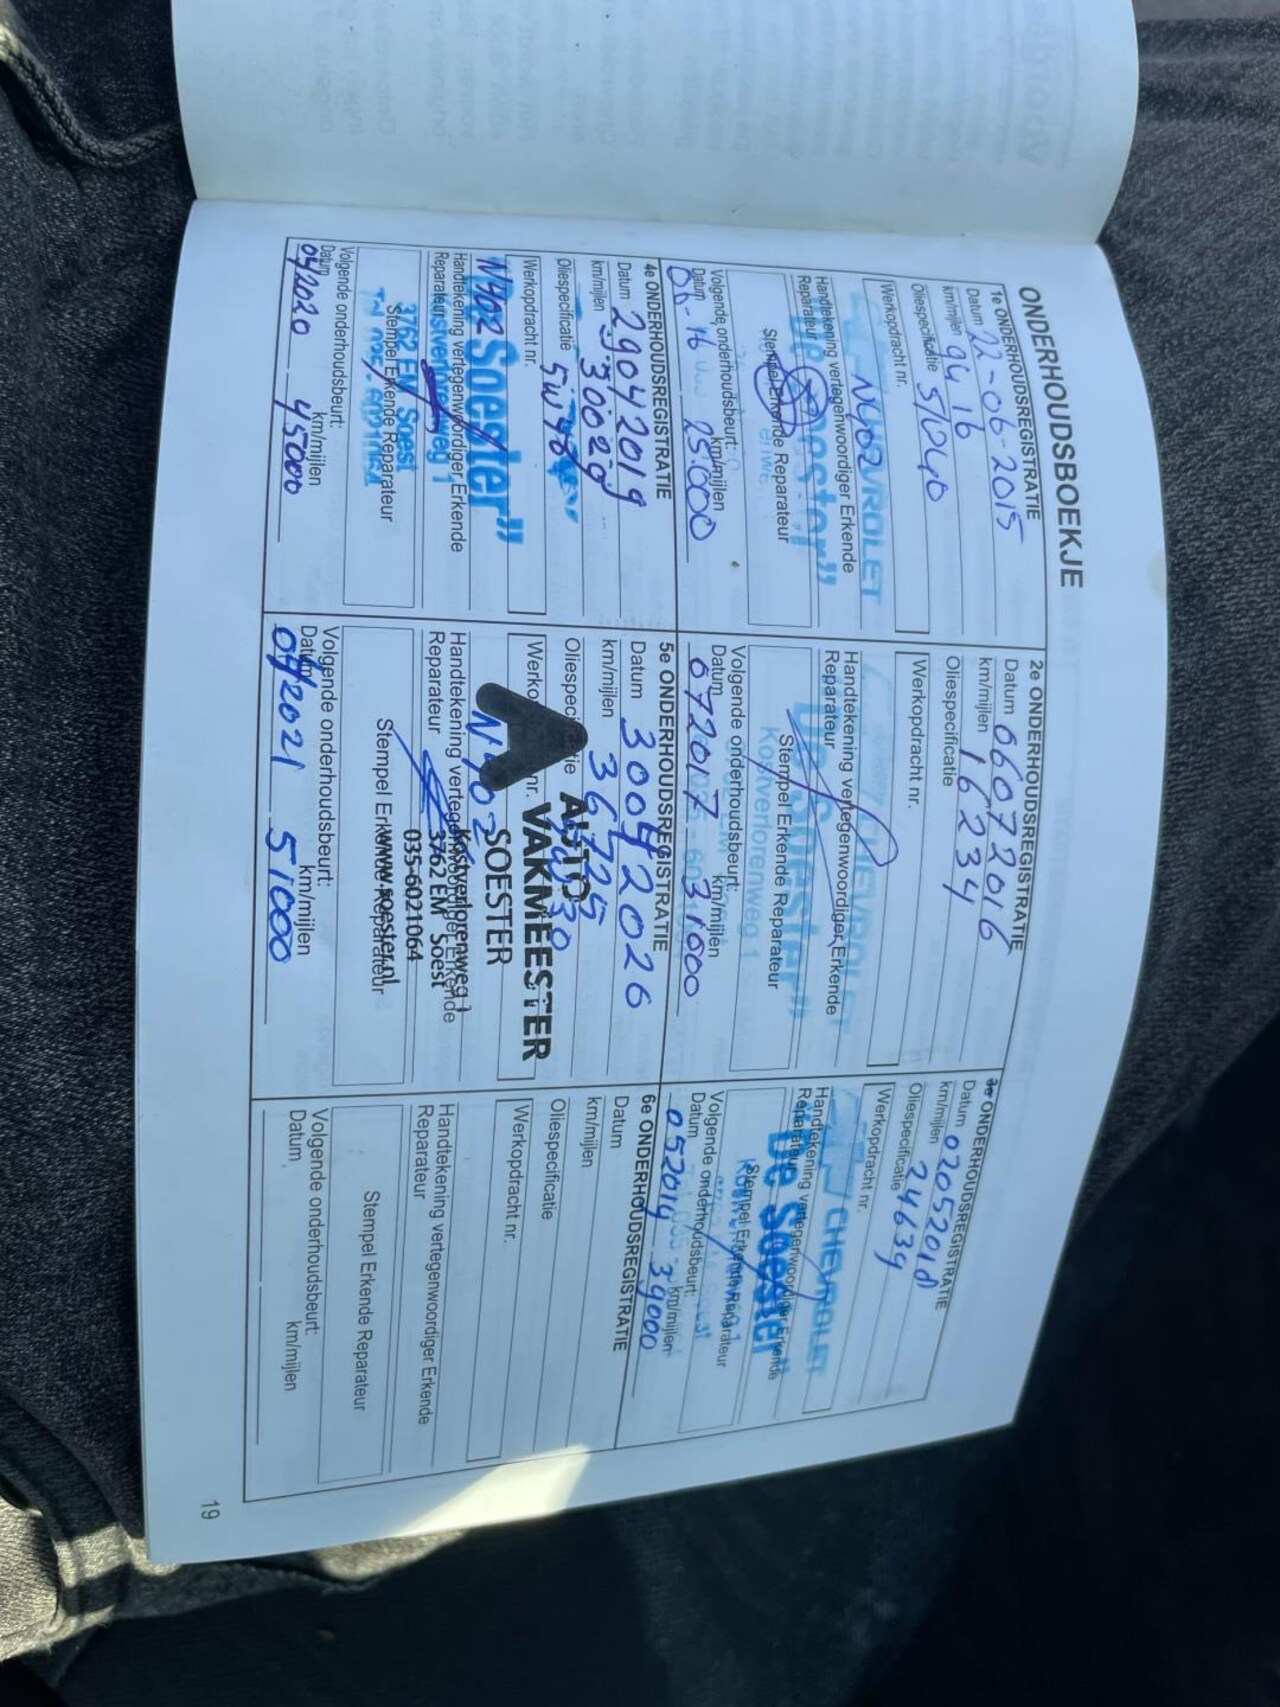 ONDERHOUDSBOEKJE
1e ONDERHOUDSREGISTRATIE
Datum 22-06-2015
km/mijlen 9416
Oliespecificatie 5/1040
Werkopdracht nr.
N402
CHEVROLET
Handtekening vertegenwoordiger Erkende
Reparateur
Stempel Erkende Reparateur
Volgende onderhoudsbeurt:
Datum km/mijlen
06-16 25.000
2e ONDERHOUDSREGISTRATIE
Datum 06072016
km/mijlen 16234
Oliespecificatie
Werkopdracht nr.
CHEVROLET
Handtekening vertegenwoordiger Erkende
Reparateur
"De Soester"
Stempel Erkende Reparateur
Kostverlorenweg 1
Volgende onderhoudsbeurt:
Datum km/mijlen
072017 31000
3e ONDERHOUDSREGISTRATIE
Datum 02052018
km/mijlen 24639
Oliespecificatie
Werkopdracht nr.
CHEVROLET
Handtekening vertegenwoordiger Erkende
Reparateur
"De Soester"
Stempel Erkende Reparateur
Volgende onderhoudsbeurt:
Datum km/mijlen
052019 39000
4e ONDERHOUDSREGISTRATIE
Datum 29042019
km/mijlen 30029
Oliespecificatie 5W40
Werkopdracht nr.
N402
Soester"
Handtekening vertegenwoordiger Erkende
Reparateur
3762 EM Soest
Stempel Erkende Reparateur
Volgende onderhoudsbeurt:
Datum km/mijlen
04/2020 45000
5e ONDERHOUDSREGISTRATIE
Datum 30042020
km/mijlen 36725
Oliespecificatie 5W30
Werkopdracht nr.
N402
AUTO
VAKMEESTER
SOESTER
Handtekening vertegenwoordiger Erkende
Reparateur
Kostverlorenweg 1
3762 EM Soest
035-6021064
www.soester.nl
Stempel Erkende Reparateur
Volgende onderhoudsbeurt:
Datum km/mijlen
04/2021 51000
6e ONDERHOUDSREGISTRATIE
Datum
km/mijlen
Oliespecificatie
Werkopdracht nr.
Handtekening vertegenwoordiger Erkende
Reparateur
Stempel Erkende Reparateur
Volgende onderhoudsbeurt:
Datum km/mijlen
19